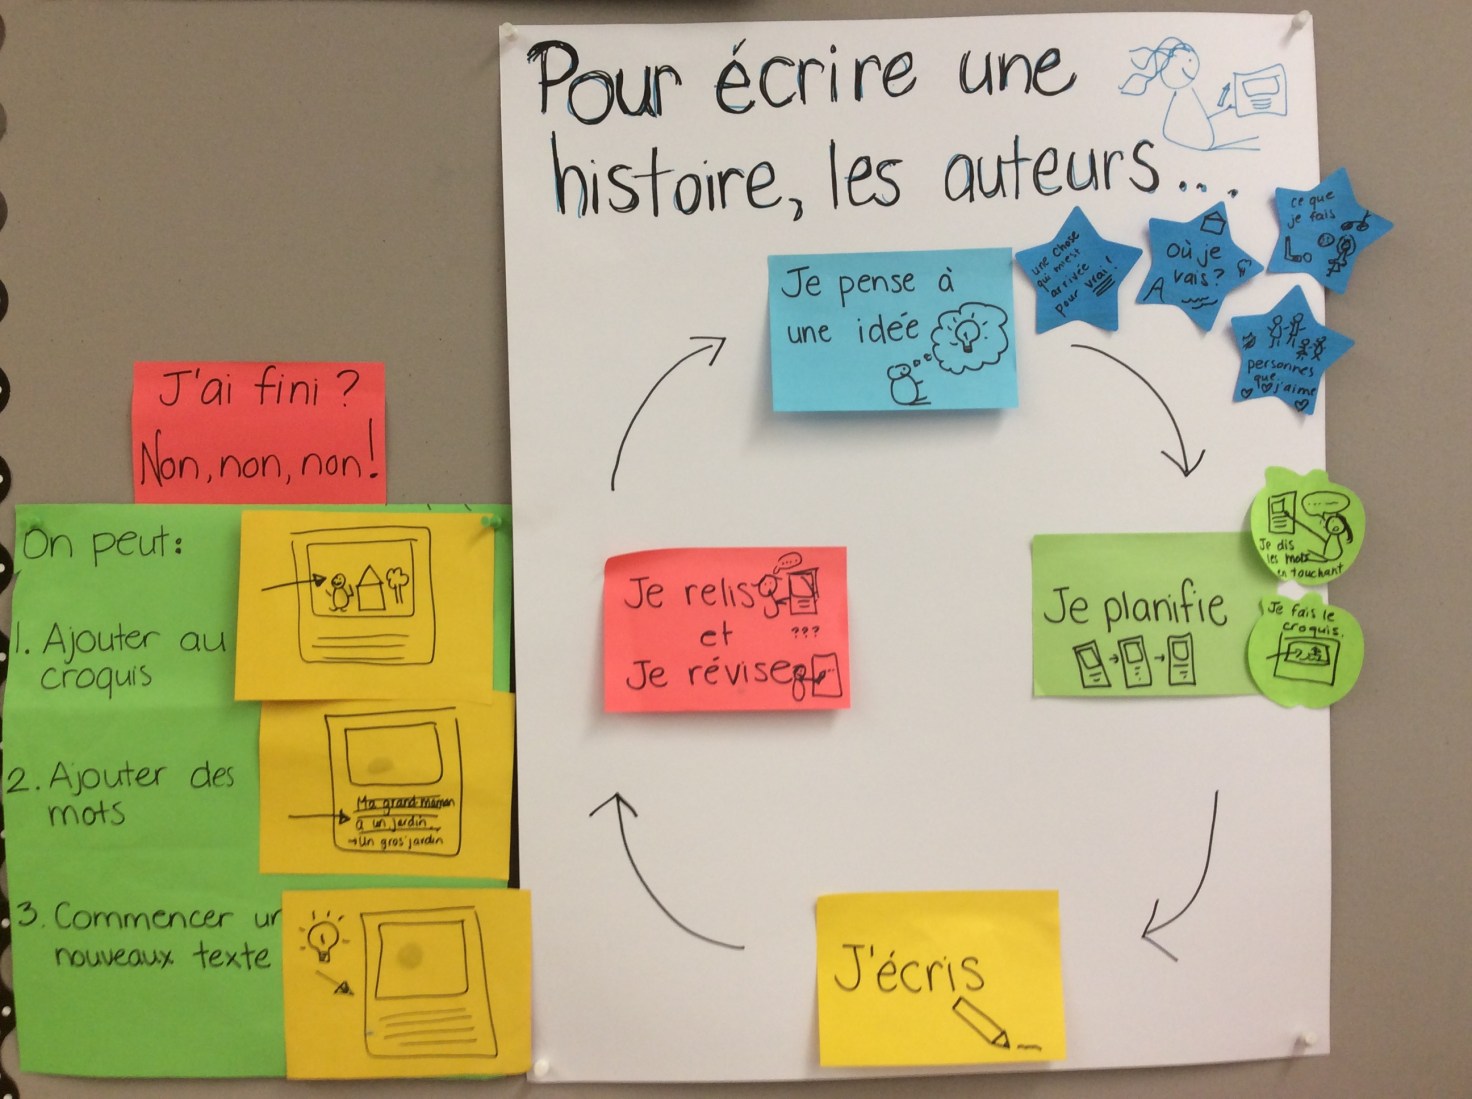 Pour écrire une
histoire, les auteurs...
Je pense à
une idée
une chose
qui m'est
arrivée
pour vrai!
où je
vais?
ce que
je fais
personnes
que
j'aime
Je planifie
Je dis
les mots
en touchant
Je fais le
croquis.
J'écris
Je relis
et
Je révise
???
J'ai fini?
Non, non, non!
On peut:
1. Ajouter au
croquis
2. Ajouter des
mots
Ma grand-maman
a un jardin.
→ Un gros jardin
3. Commencer un
nouveaux texte